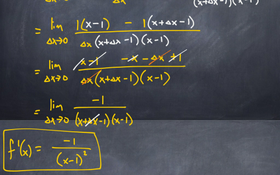 (x+Δx-1)(x-1)
= lim Δx→0 1(x-1) - 1(x+Δx-1) / Δx(x+Δx-1)(x-1)
= lim Δx→0 x-1 -x-Δx+1 / Δx(x+Δx-1)(x-1)
= lim Δx→0 -1 / (x+Δx-1)(x-1)
f'(x) = -1 / (x-1)²